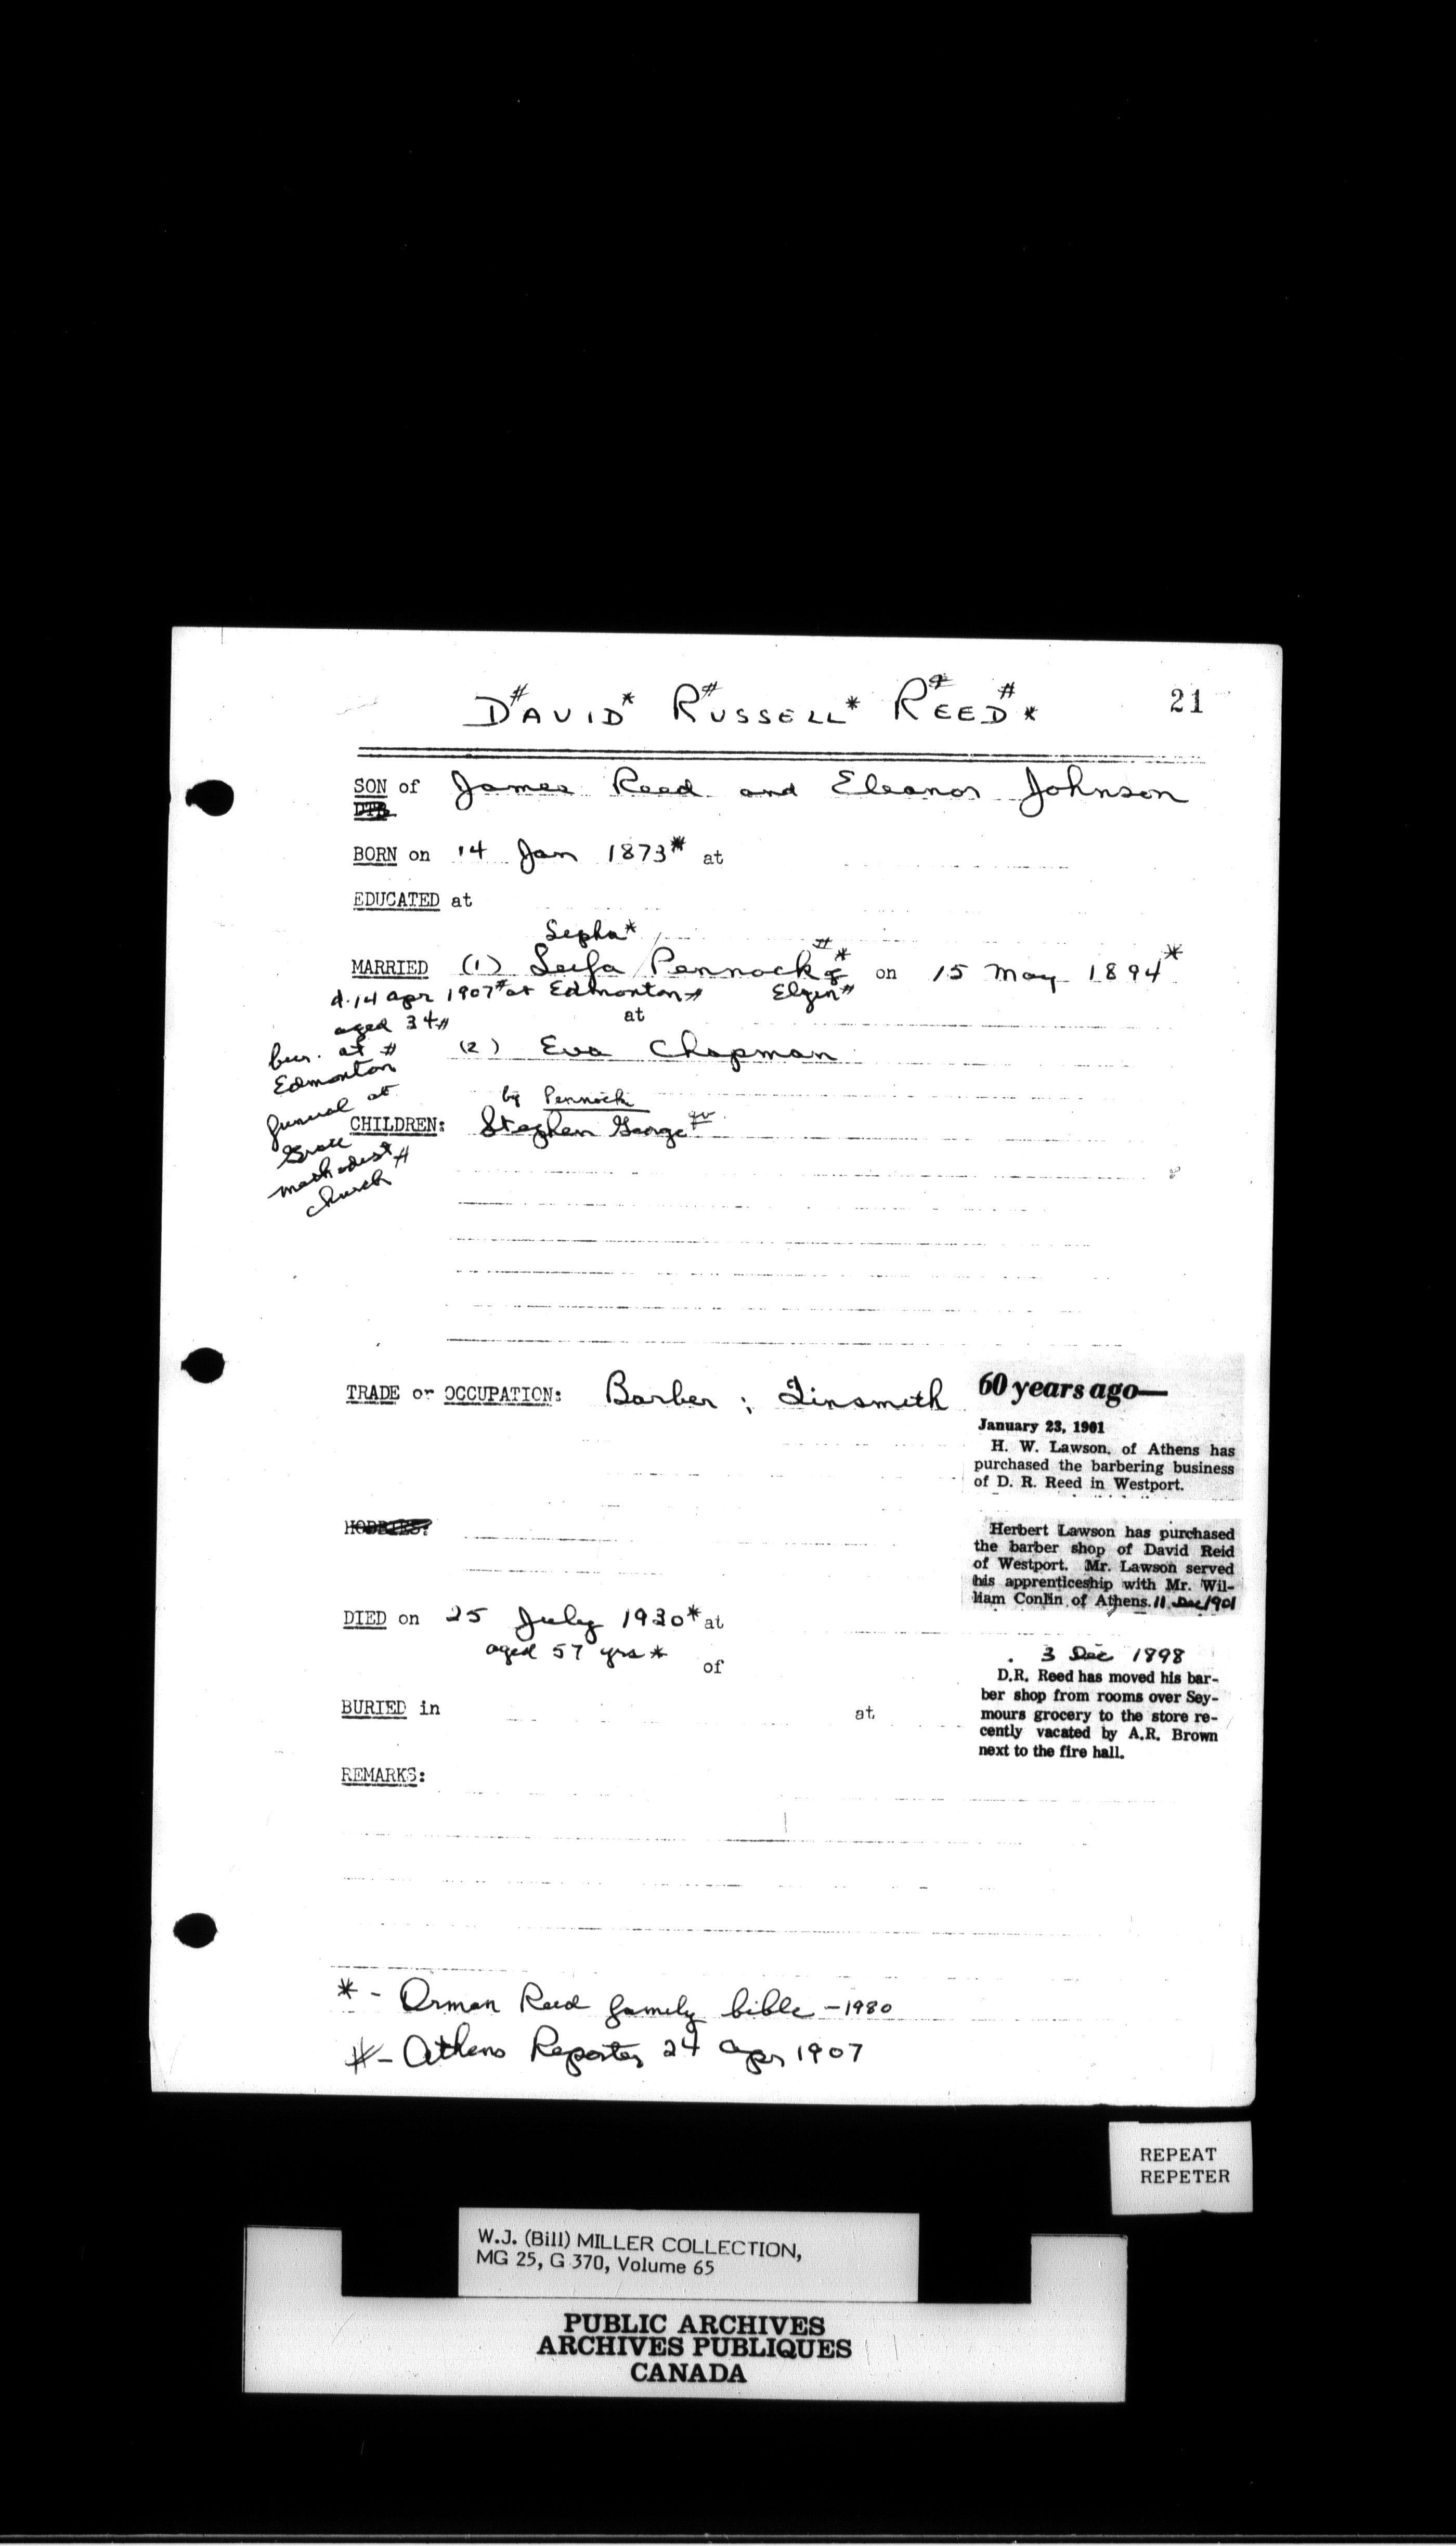 D#AVID* R#USSELL* R#EED#*
21
SON of James Reed and Eleanor Johnson
BORN on 14 Jan 1873* at
EDUCATED at
Sepha*
MARRIED (1) Seifa Pennock#* of on 15 May 1894*
d. 14 Apr 1907# at Edmonton# Elgin#
aged 34#
at
bur. at #
Edmonton
funeral at
Grace
methodist #
church
(2) Eva Chapman
by Pennock
CHILDREN: Stephen George qv
TRADE or OCCUPATION: Barber ; Tinsmith
60 years ago—
January 23, 1901
H. W. Lawson, of Athens has
purchased the barbering business
of D. R. Reed in Westport.
HOBBIES:
Herbert Lawson has purchased
the barber shop of David Reid
of Westport. Mr. Lawson served
his apprenticeship with Mr. Wil-
liam Conlin of Athens. 11 Dec 1901
DIED on 25 July 1930* at
aged 57 yrs *
of
3 Dec 1898
D.R. Reed has moved his bar-
ber shop from rooms over Sey-
mours grocery to the store re-
cently vacated by A.R. Brown
next to the fire hall.
BURIED in at
REMARKS:
* - Orman Reed family bible - 1980
# - Athens Reporter 24 Apr 1907
REPEAT
REPETER
W.J. (Bill) MILLER COLLECTION,
MG 25, G 370, Volume 65
PUBLIC ARCHIVES
ARCHIVES PUBLIQUES
CANADA